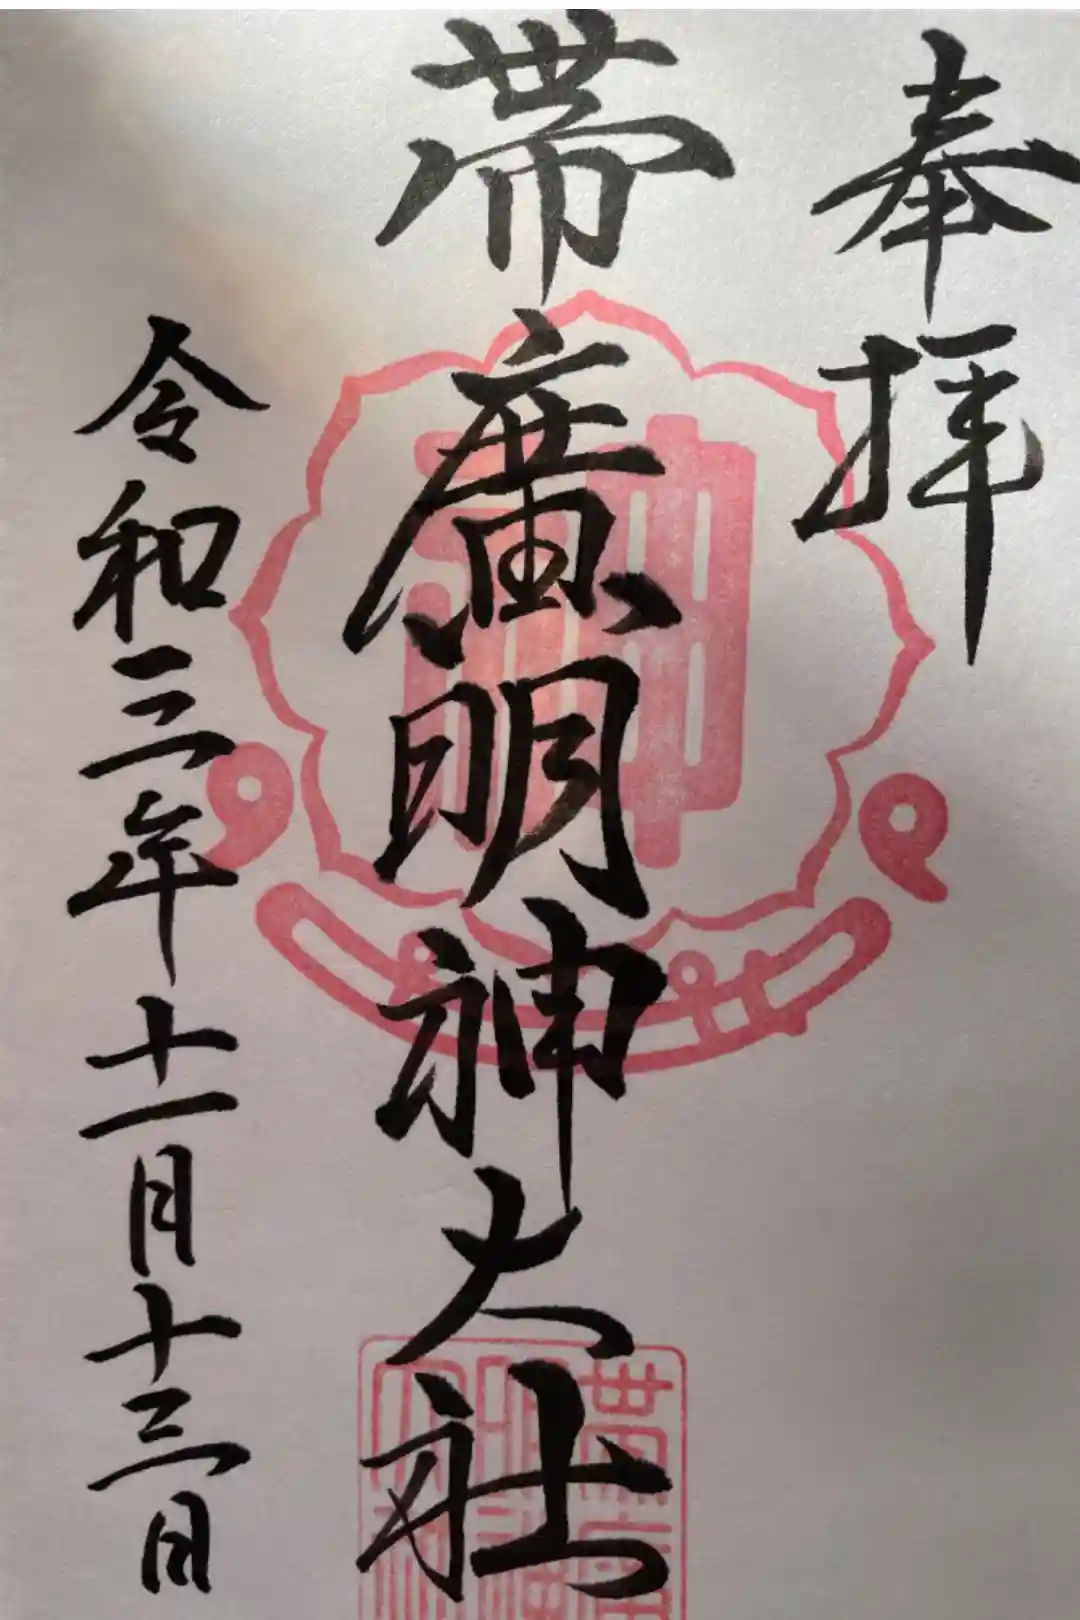 奉拝
帯廣明神大社
令和三年十一月十三日
神